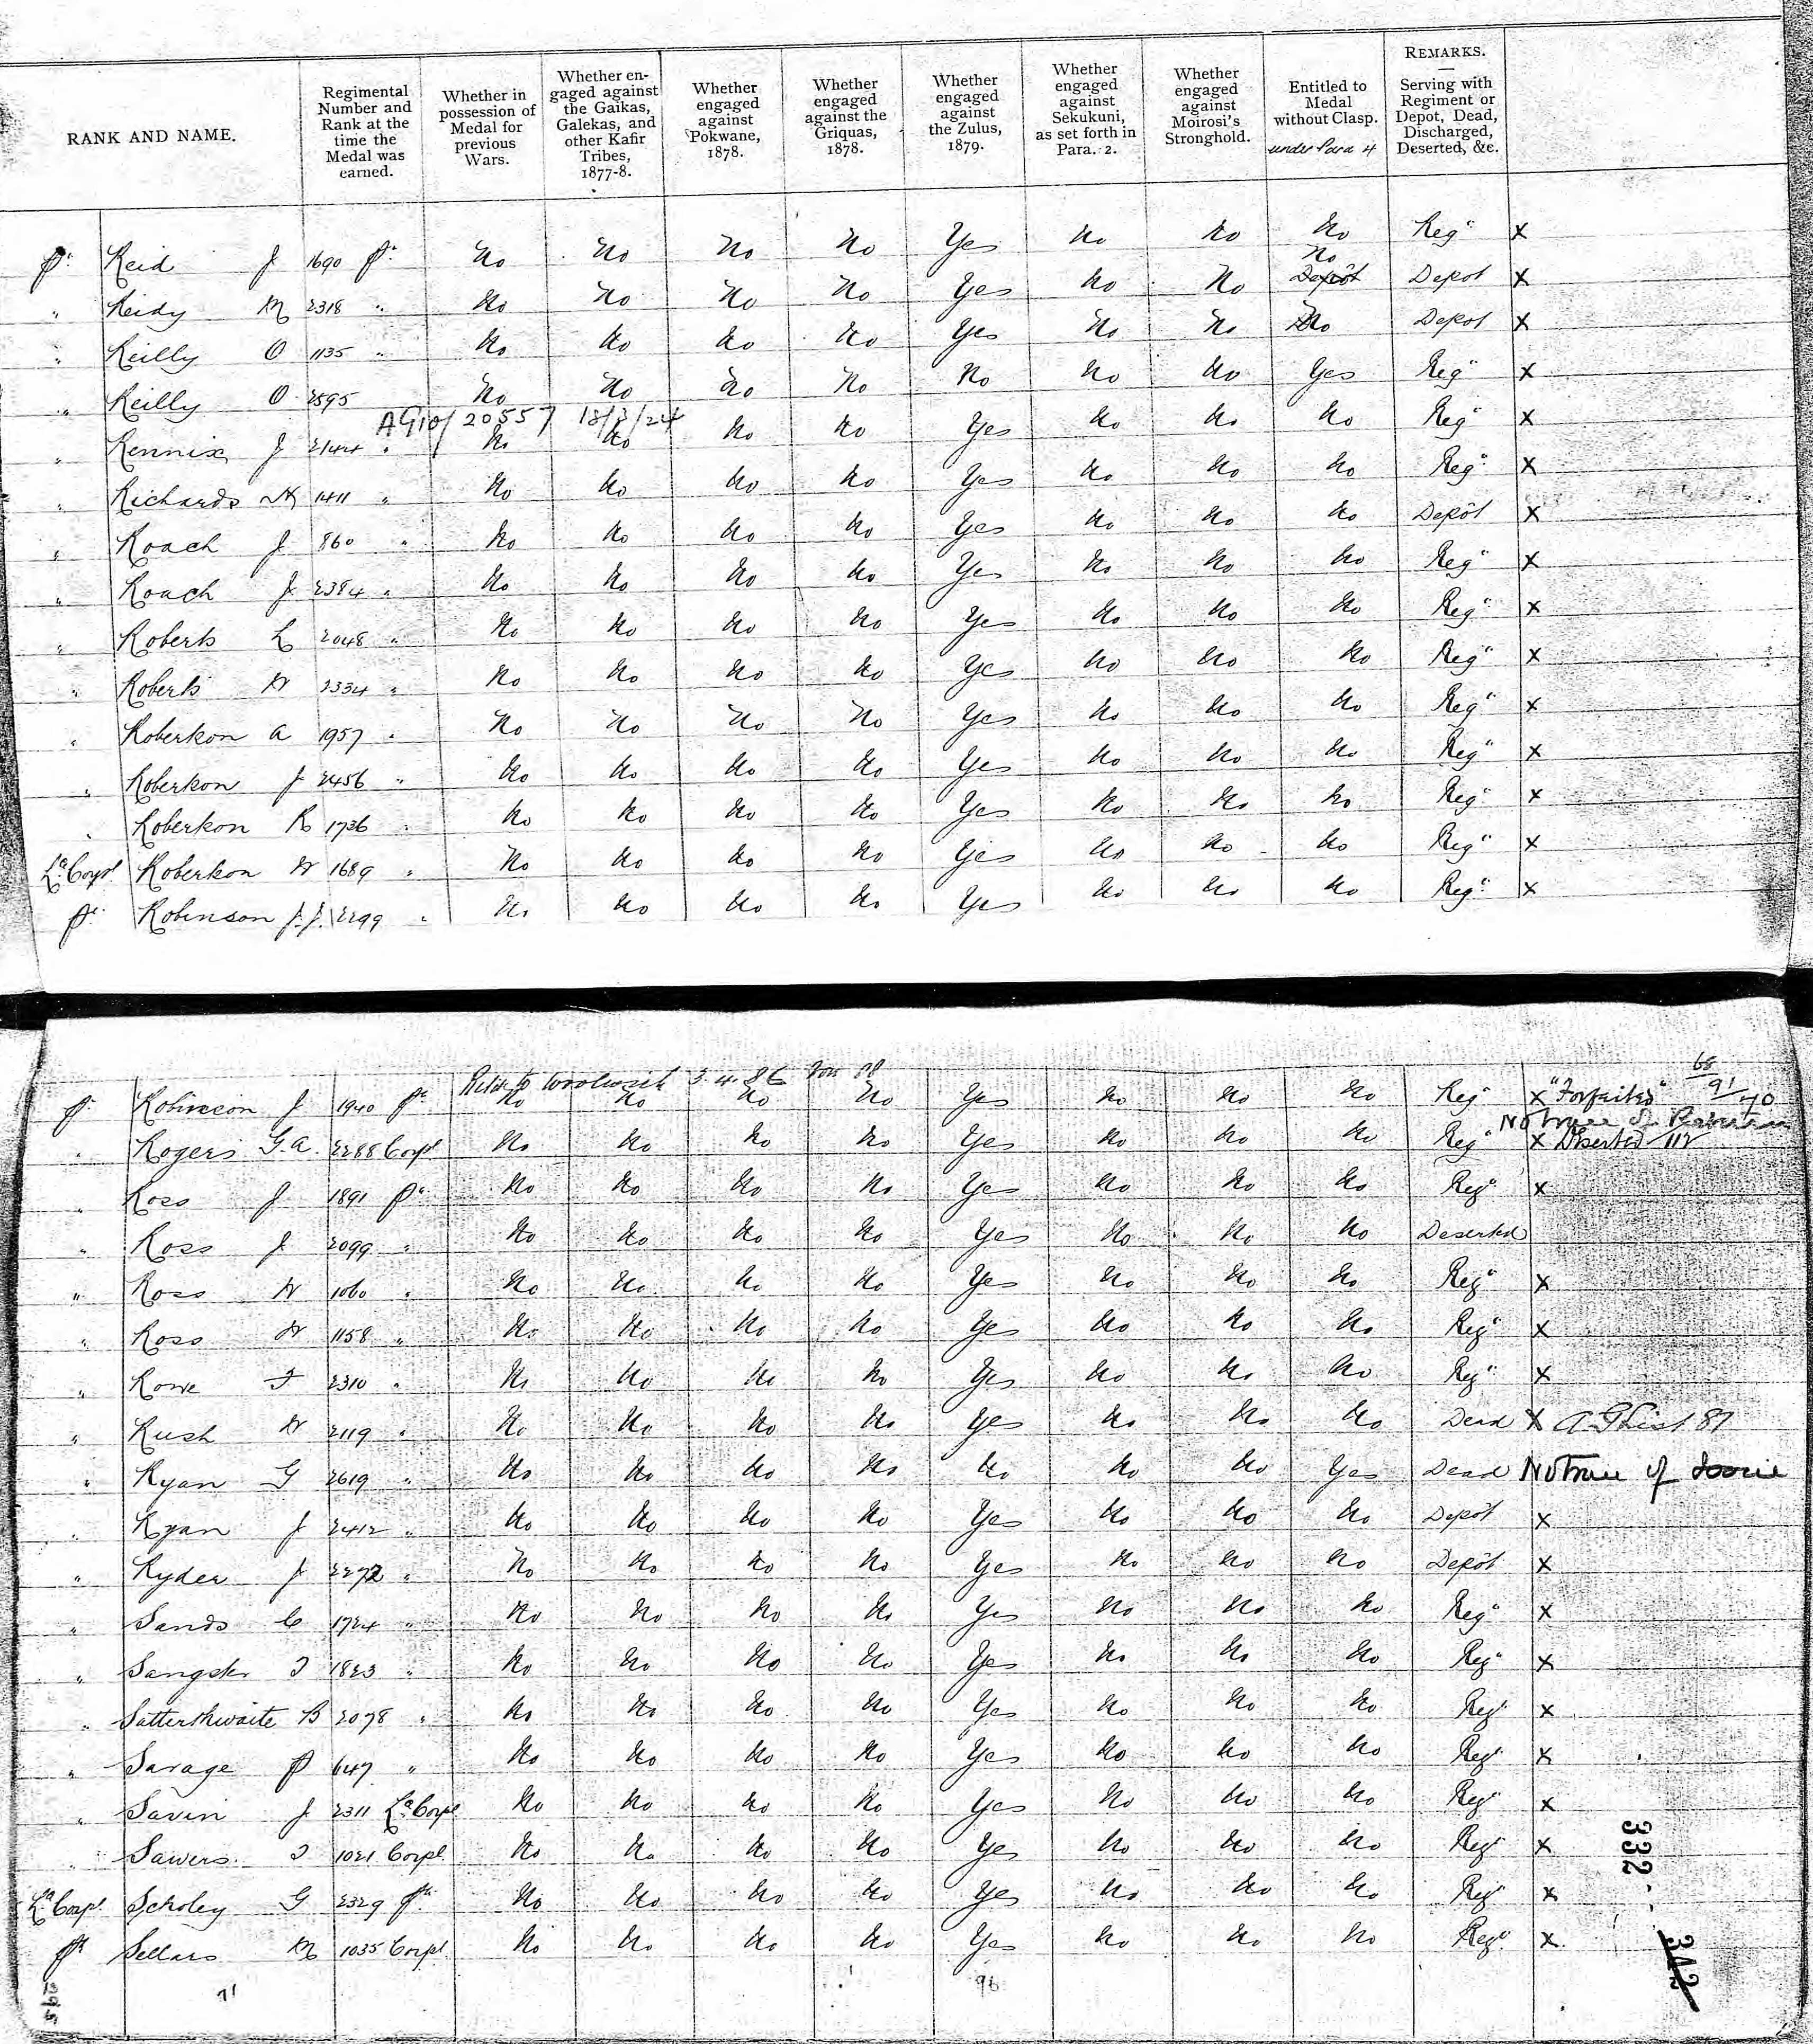 RANK AND NAME. Regimental Number and Rank at the time the Medal was earned. Whether in possession of Medal for previous Wars. Whether engaged against the Gaikas, Galekas, and other Kafir Tribes, 1877-8. Whether engaged against Pokwane, 1878. Whether engaged against the Griquas, 1878. Whether engaged against the Zulus, 1879. Whether engaged against Sekukuni, as set forth in Para. 2. Whether engaged against Moirosi's Stronghold. Entitled to Medal without Clasp. under Para 4 REMARKS. — Serving with Regiment or Depot, Dead, Discharged, Deserted, &c.
Pte Reid J 1690 Pte No No No No Yes No No No Regt X
" Reidy M 2318 " No No No No Yes No No No Depôt Depot X
" Reilly O 1135 " No No No No Yes No No No Depot X
" Reilly O 2595 No No No No No No No Yes Regt X
AG10/20557 18/3/24
" Rennix J 2144 " No No No No Yes No No No Regt X
" Richards W 1411 " No No No No Yes No No No Regt X
" Roach J 860 " No No No No Yes No No No Depôt X
" Roach J 2384 " No No No No Yes No No No Regt X
" Roberts L 2048 " No No No No Yes No No No Regt X
" Roberts W 2334 " No No No No Yes No No No Regt X
" Robertson A 1957 " No No No No Yes No No No Regt X
" Robertson J 2456 " No No No No Yes No No No Regt X
" Robertson R 1736 " No No No No Yes No No No Regt X
Le Corpl Robertson W 1689 " No No No No Yes No No No Regt X
Pte Robinson J.J. 2299 " No No No No Yes No No No Regt X
to Woolwich 3.4.86 68/91/40
Pte Robinson J 1940 Pte No No No No Yes No No No Regt X "Forfeited"
No trace of
" Rogers G.A. 2288 Corpl No No No No Yes No No No Regt X Deserted 112
" Ross J 1891 Pte No No No No Yes No No No Regt X
" Ross J 2099 " No No No No Yes No No No Deserted
" Ross W 1060 " No No No No Yes No No No Regt X
" Ross W 1158 " No No No No Yes No No No Regt X
" Rowe F 2310 " No No No No Yes No No No Regt X
" Rush W 2119 " No No No No Yes No No No Dead X 87
" Ryan G 2619 " No No No No No No No Yes Dead No trace of
" Ryan J 2412 " No No No No Yes No No No Depôt X
" Ryder J 2272 " No No No No Yes No No No Depôt X
" Sands C 1724 " No No No No Yes No No No Regt X
" Sangster J 1823 " No No No No Yes No No No Regt X
" Satterthwaite B 2078 " No No No No Yes No No No Regt X
" Savage P 647 " No No No No Yes No No No Regt X
" Savin J 2311 Le Corpl No No No No Yes No No No Regt X
" Sawers J 1021 Corpl No No No No Yes No No No Regt X
Le Corpl Scholey G 2329 Pte No No No No Yes No No No Regt X
Pte Sellars M 1035 Corpl No No No No Yes No No No Regt X
332
342
71
96